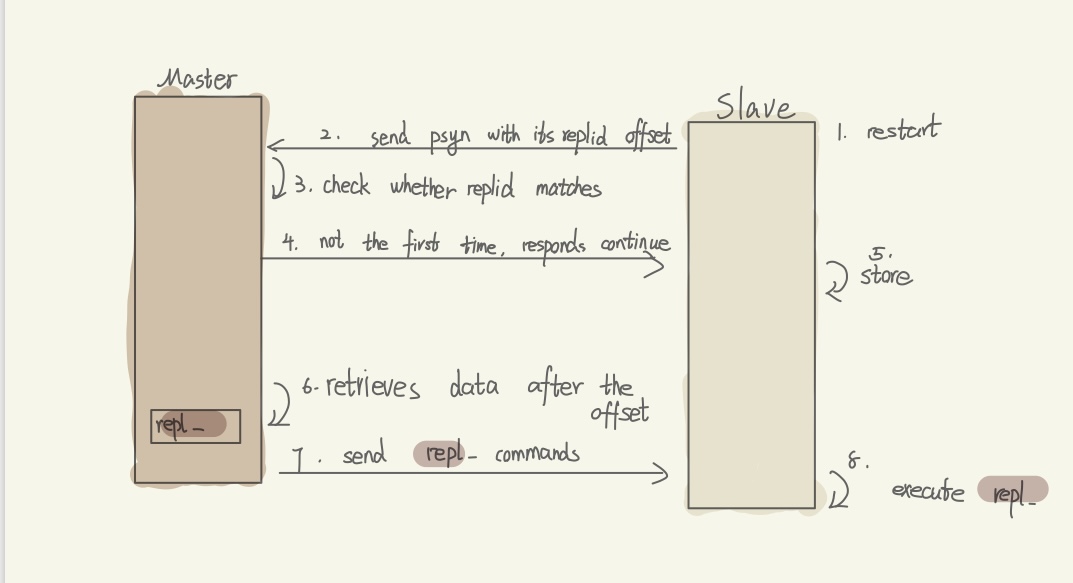 Master
Slave
1. restart
2. send psyn with its replid offset
3. check whether replid matches
4. not the first time, responds continue
5.
store
6. retrieves data after the
offset
repl_
7. send repl_ commands
8.
execute repl_